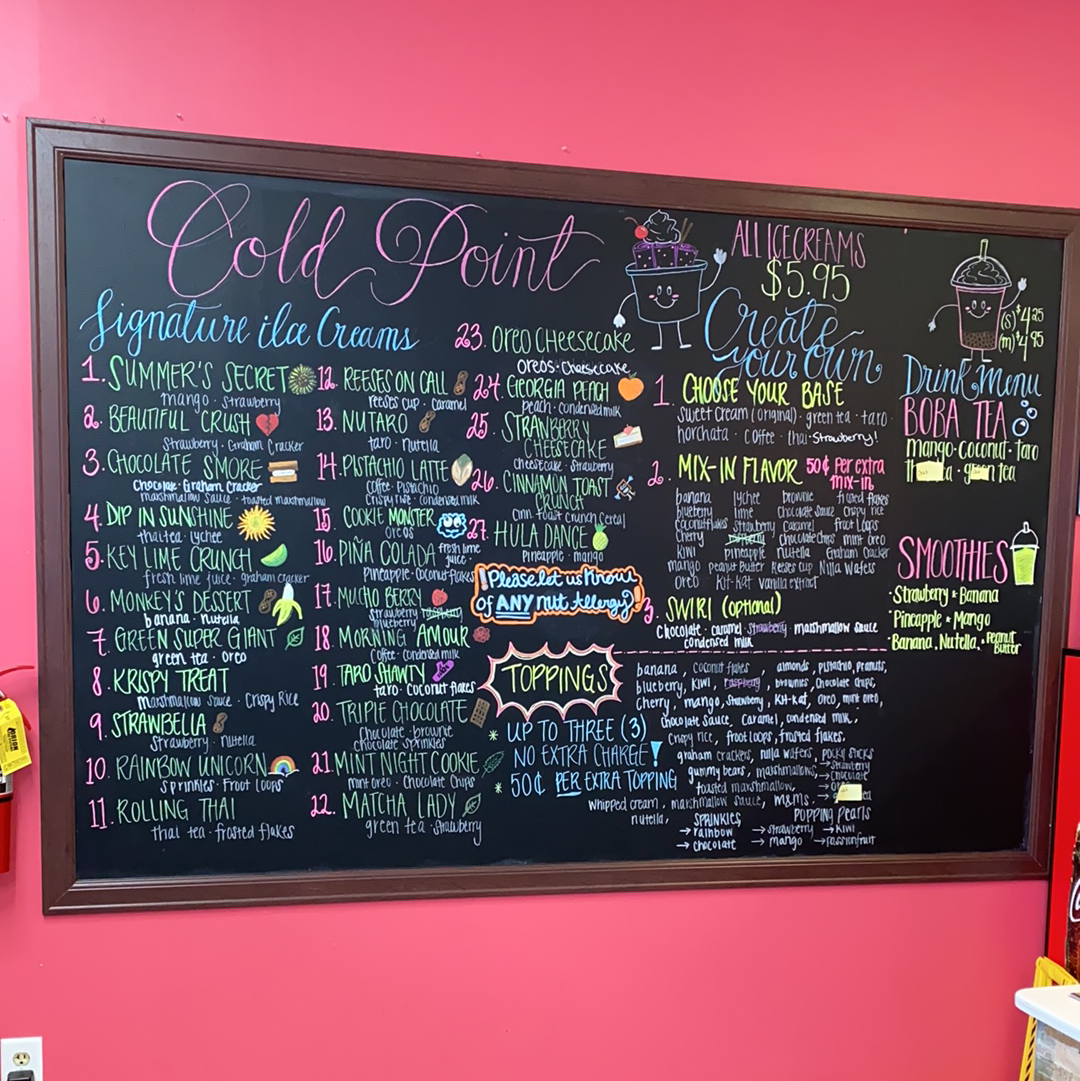 Cold Point
Signature ice Creams
1. SUMMER'S SECRET
mango · strawberry
2. BEAUTIFUL CRUSH
Strawberry · Graham Cracker
3. CHOCOLATE SMORE
Chocolate · Graham Cracker
marshmallow sauce · toasted marshmallow
4. DIP IN SUNSHINE
thai tea · lychee
5. KEY LIME CRUNCH
fresh lime juice · graham cracker
6. MONKEY'S DESSERT
banana · nutella
7. GREEN SUPER GIANT
green tea · oreo
8. KRISPY TREAT
marshmallow sauce · Crispy Rice
9. STRAWBELLA
Strawberry · nutella
10. RAINBOW UNICORN
sprinkles · Froot loops
11. ROLLING THAI
thai tea · frosted flakes
12. REESES ON CALL
reeses cup · caramel
13. NUTARO
taro · nutella
14. PISTACHIO LATTE
coffee · pistachio
Crispy rice · condensed milk
15 COOKIE MONSTER
oreos
16. PIÑA COLADA fresh lime juice ·
Pineapple · coconut flakes
17. MUCHO BERRY
strawberry raspberry
blueberry
18. MORNING AMOUR
Coffee · condensed milk
19. TARO SHAWTY
taro · coconut flakes
20. TRIPLE CHOCOLATE
Chocolate · brownie
chocolate sprinkles
21. MINT NIGHT COOKIE
mint oreo · Chocolate Chips
22. MATCHA LADY
green tea · strawberry
23. OREO CHEESECAKE
oreos · cheesecake
24. GEORGIA PEACH
peach · condensed milk
25. STRANBERRY
CHEESECAKE
cheesecake · strawberry
26. CINNAMON TOAST
CRUNCH
Cinn. toast crunch cereal
27. HULA DANCE
Pineapple · mango
! Please let us know
of ANY nut Allergy!
ALL ICE CREAMS
$5.95
Create
your own
1. CHOOSE YOUR BASE
Sweet Cream (original) · green tea · taro
horchata · coffee · thai · strawberry!
2. MIX-IN FLAVOR 50¢ per extra
mix-in
banana lychee brownie frosted flakes
blueberry lime chocolate sauce crispy rice
coconut flakes strawberry caramel froot loops
cherry raspberry chocolate chips mint oreo
kiwi pineapple nutella Graham Cracker
mango peanut butter Reeses cup Nilla Wafers
oreo Kit-kat vanilla extract
3. SWIRL (optional)
Chocolate · caramel · strawberry · marshmallow sauce
condensed milk
TOPPINGS
* UP TO THREE (3)
NO EXTRA CHARGE!
* 50¢ PER EXTRA TOPPING
banana, coconut flakes almonds, pistachio, peanuts,
blueberry, kiwi, raspberry, brownies, Chocolate chips,
cherry, mango, strawberry, Kit-kat, oreo, mint oreo,
chocolate sauce, caramel, condensed milk,
crispy rice, froot loops, frosted flakes,
graham crackers, nilla wafers, pocky sticks
→ strawberry
gummy bears, marshmallows, → chocolate
toasted marshmallow,
whipped cream, marshmallow sauce, m&ms,
nutella, SPRINKLES
→ rainbow
→ chocolate
POPPING pearls
→ strawberry → kiwi
→ mango → passionfruit
(s) $4.25
(m) $4.95
Drink Menu
BOBA TEA
mango · coconut · taro
tea
SMOOTHIES
· Strawberry * Banana
· Pineapple * Mango
· Banana, Nutella, * Peanut Butter